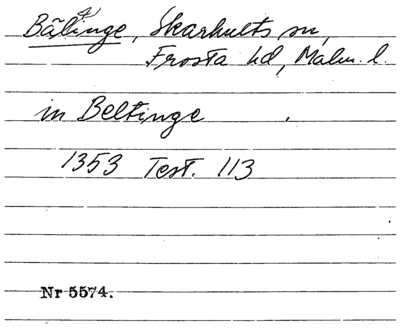 Bälinge, Skarhults sn,
Frosta hd, Malm. l.
in Beltinge
1353 Test. 113
Nr 5574.